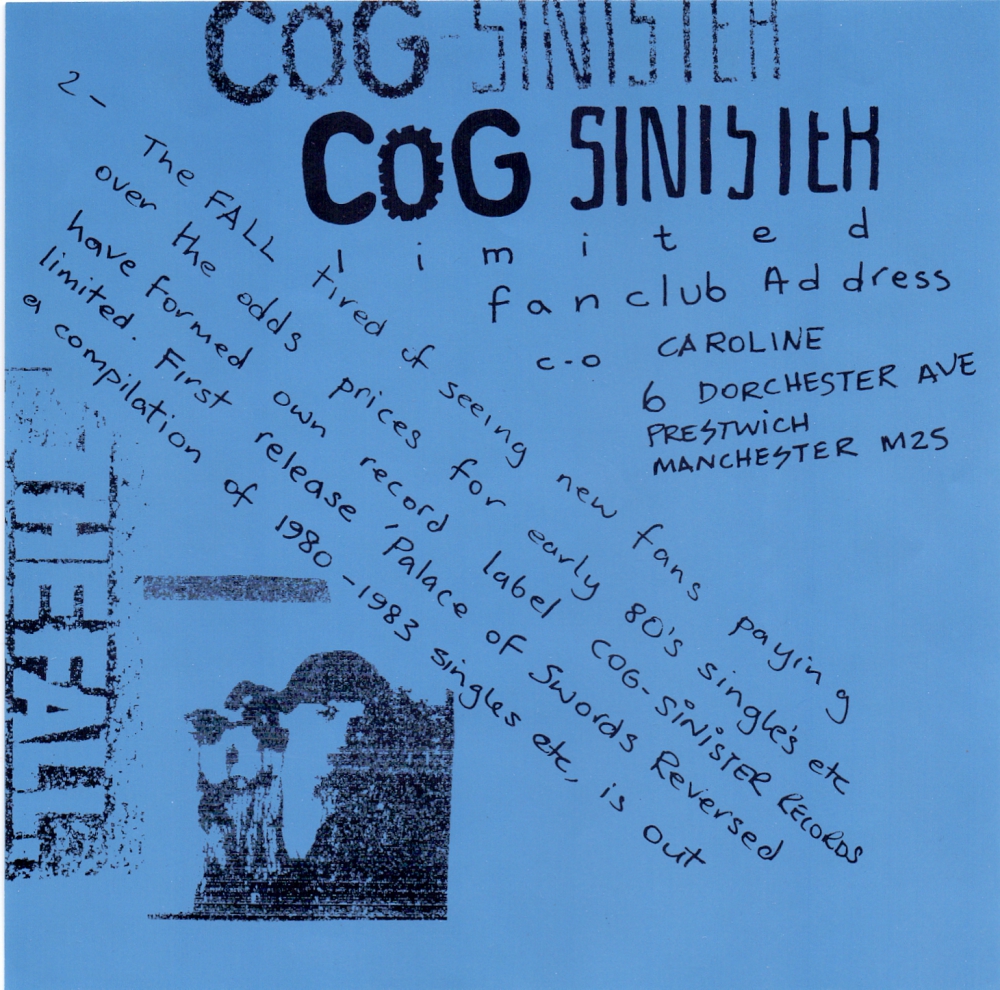 COG SINISTER
COG SINISTER
limited
fanclub Address
c-o CAROLINE
6 DORCHESTER AVE
PRESTWICH
MANCHESTER M25
2-
The FALL tired of seeing new fans paying
over the odds prices for early 80's single's etc
have formed own record label COG-SINISTER RECORDS
limited. First release 'Palace of Swords Reversed
a compilation of 1980-1983 singles etc, is out
THE FALL